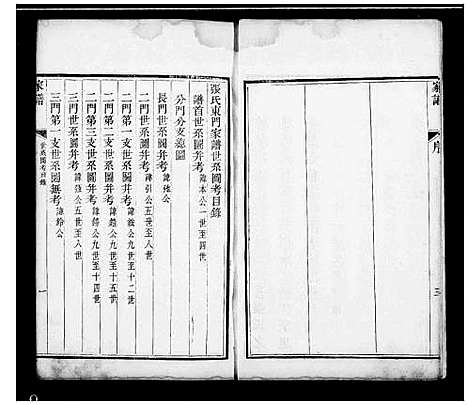 家譜
序
三
張氏東門家譜世系圖考目錄
譜首世系圖并考 諱本公一世至四世
分門分支總圖
長門世系圖并考 諱公
二門世系圖并考 諱引公五世至八世
二門第一支世系圖并考 諱公九世至十二世
二門第二支世系圖并考 諱公九世至十五世
二門第三支世系圖并考 諱公九世至十四世
三門世系圖并考 諱公五世至八世
三門第一支世系圖無考 諱鈴公
家譜
世系圖考目錄
一